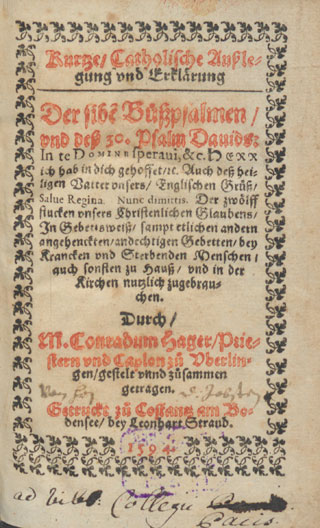 Kurtze/ Catholische Außle-
gung vnd Erklärung
Der sibē Bůßpsalmen/
vnd deß 30. Psalm Dauids:
In te DOMINE speraui, &c. HERR
ich hab in dich gehoffet/ꝛc. Auch deß hei-
ligen Vatter vnsers/ Englischen Grůß/
Salue Regina. Nunc dimittis. Der zwölff
stucken vnsers Christenlichen Glaubens/
In Gebetsweiß/ sampt etlichen andern
angehenckten/ andechtigen Gebetten/ bey
Krancken vnd Sterbenden Menschen/
auch sonsten zu Hauß/ vnd in der
Kirchen nutzlich zugebrau-
chen.
Durch/
M. Conradum Hager/ Prie-
stern vnd Caplon zů Vberlin-
gen/ gestelt vnnd zůsammen
getragen.
Getruckt zů Costantz am Bo-
densee/ bey Leonhart Straub.
1594
ad bibl. Collegii